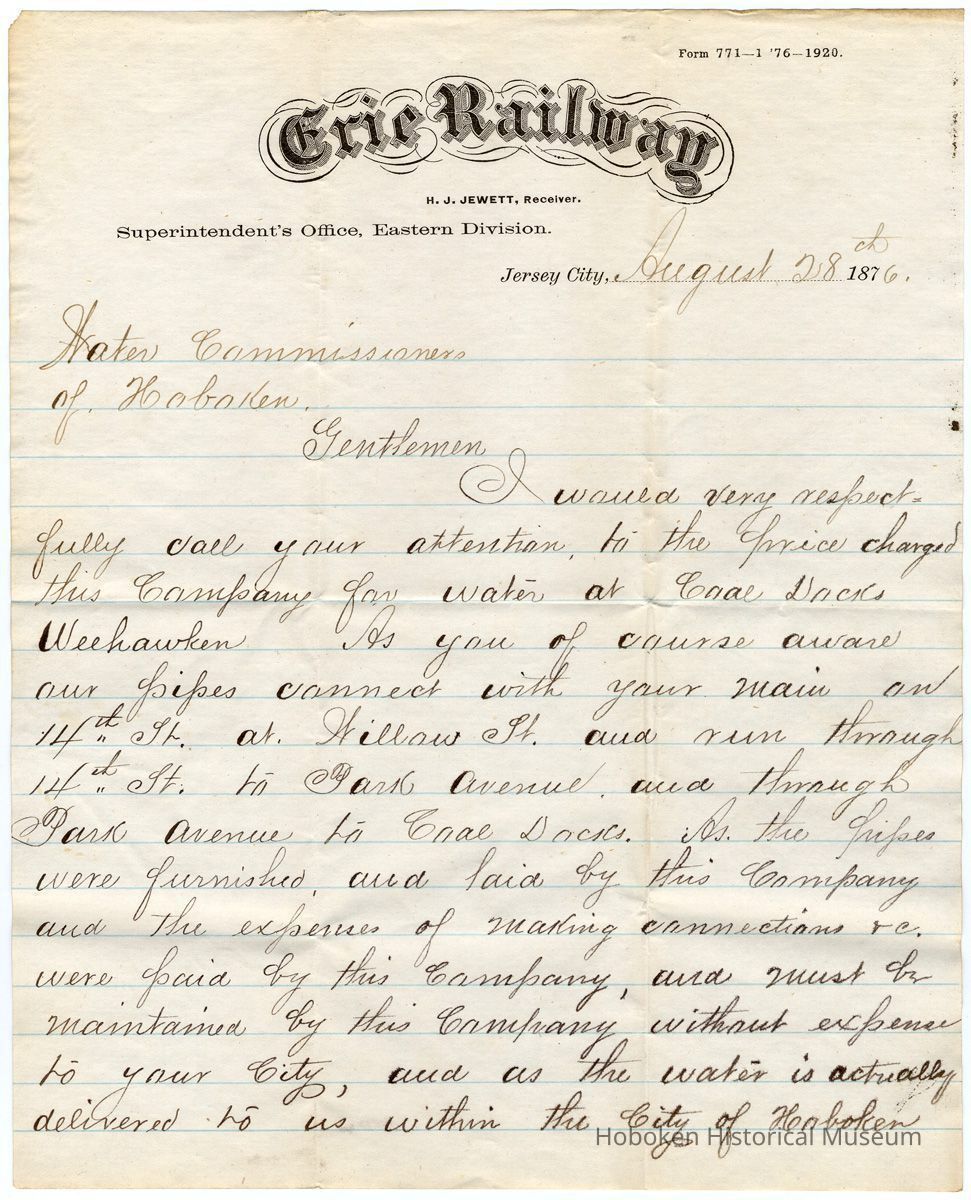 Form 771—1 '76—1920.
Erie Railway
H. J. JEWETT, Receiver.
Superintendent's Office, Eastern Division.
Jersey City, August 28th 1876.
Water Commissioners
of Hoboken.
Gentlemen
I would very respect=
fully call your attention, to the price charged
this Company for water at Coal Docks
Weehawken As you of course aware
our pipes connect with your main on
14th St. at. Willow St. and run through
14th St. to Park Avenue. and through
Park Avenue to Coal Docks. As. the pipes
were furnished, and laid by this Company
and the expenses of making connections &c.
were paid by this Company, and must be
maintained by this Company without expense
to your City, and as the water is actually
delivered to us within the City of Hoboken
Hoboken Historical Museum